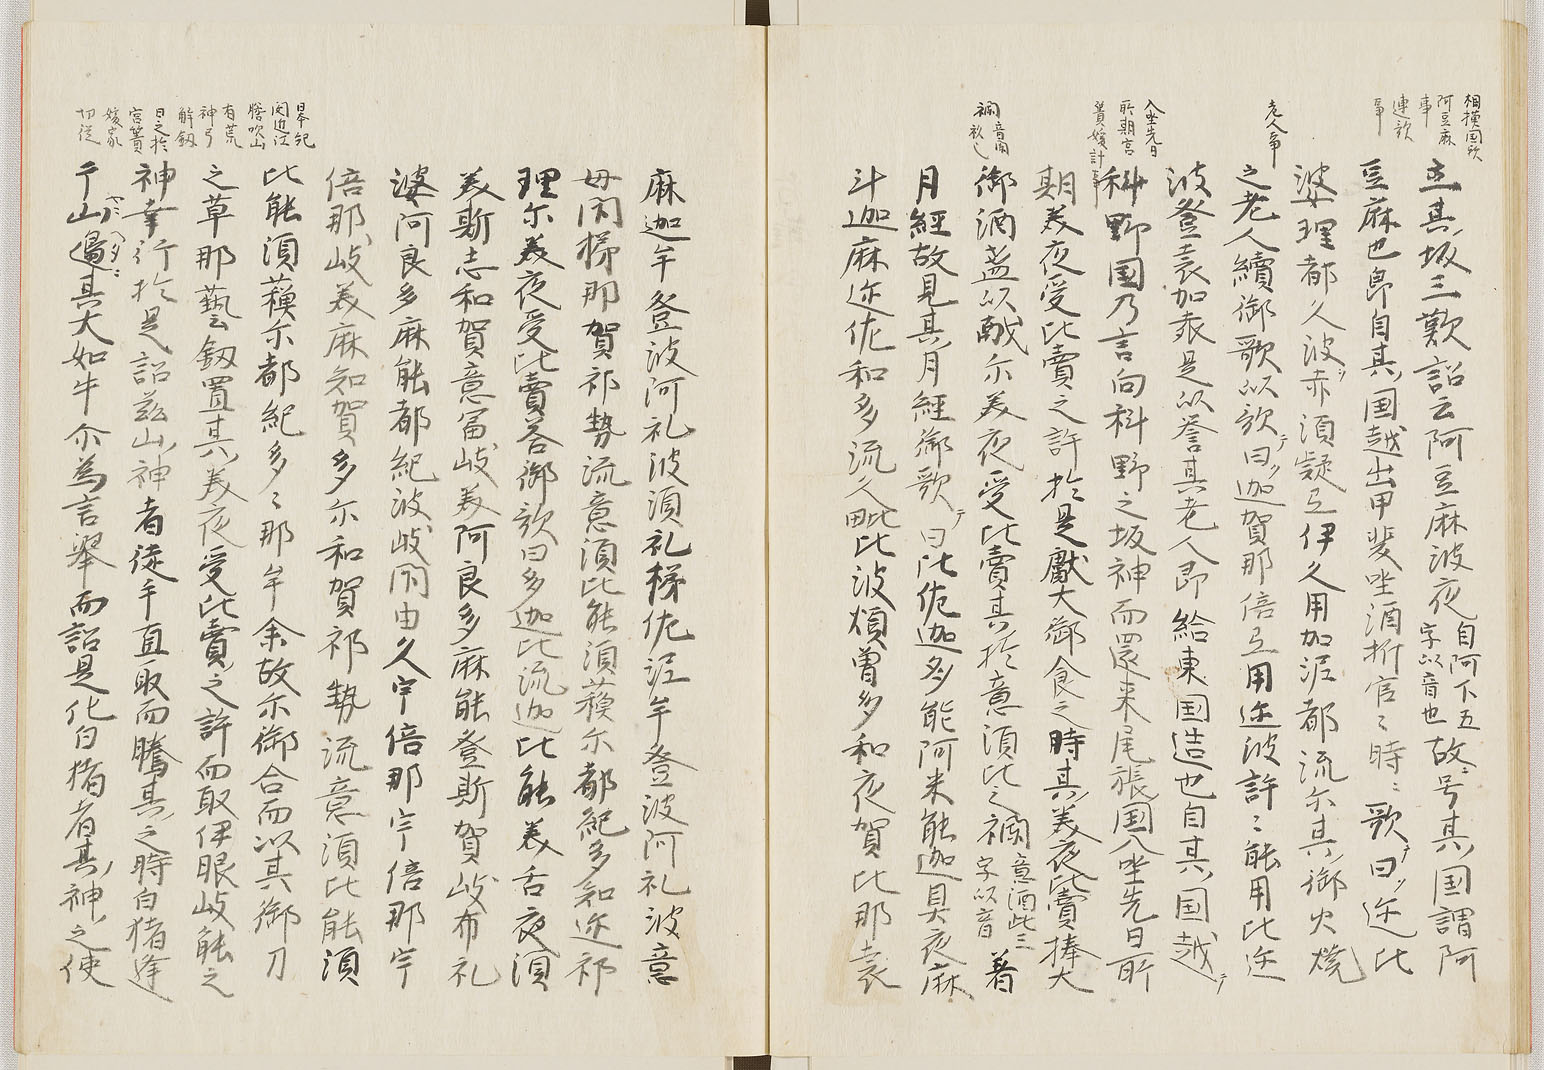 相摸国歌
阿豆麻
事
連歌
事
立其坂三歎詔云阿豆麻波夜自阿下五字以音也故ミ号其国謂阿
豆麻也即自其国越出甲斐坐酒折宮ミ時ミ歌曰迩比
婆理都久波赤須疑弖伊久用加泥都流尓其御火燒
之老人續御歌以歌曰迦賀那倍弖用迩波許ミ能用比迩
波登袁加袁是以誉其老人即給東国造也自其国越
入坐先日
所期宮
簀媛計事
科野国乃言向科野之坂神而還来尾張国入坐先日所
期美夜受比賣之許於是獻大御食之時其美夜比賣捧大
襴音闌
御酒盞以献尓美夜受比賣其於意須比之襴意須此三字以音著
月經故見其月經御歌曰比佐迦多能阿米能迦具夜麻
斗迦麻迩佐和多流久毗比波煩曽多和夜賀比那袁
麻迦牟登波阿礼波須礼梯佐泥牟登波阿礼波意
母閇梯那賀祁勢流意須比能須蘓尓都紀多知迩祁
理尓美夜受比賣答御歌曰多迦比流迦比能美古夜須
美斯志和賀意富岐美阿良多麻能登斯賀岐布礼
婆阿良多麻能都紀波岐閇由久宇倍那宇倍那宇
倍那岐美麻知賀多尓和賀祁勢流意須比能須
日本紀
聞近江
膽吹山
有荒
神弓
解釼
日之於
宮簀
媛家
比能須蘓尓都紀多ミ那牟余故尓御合而以其御刀
之草那藝釼置其美夜受比賣之許而取伊服岐能之
神幸行於是詔茲山神者徒手直取而騰其之時白猪逢
于山邊其大如牛尓為言挙而詔是化白猪者其神之使